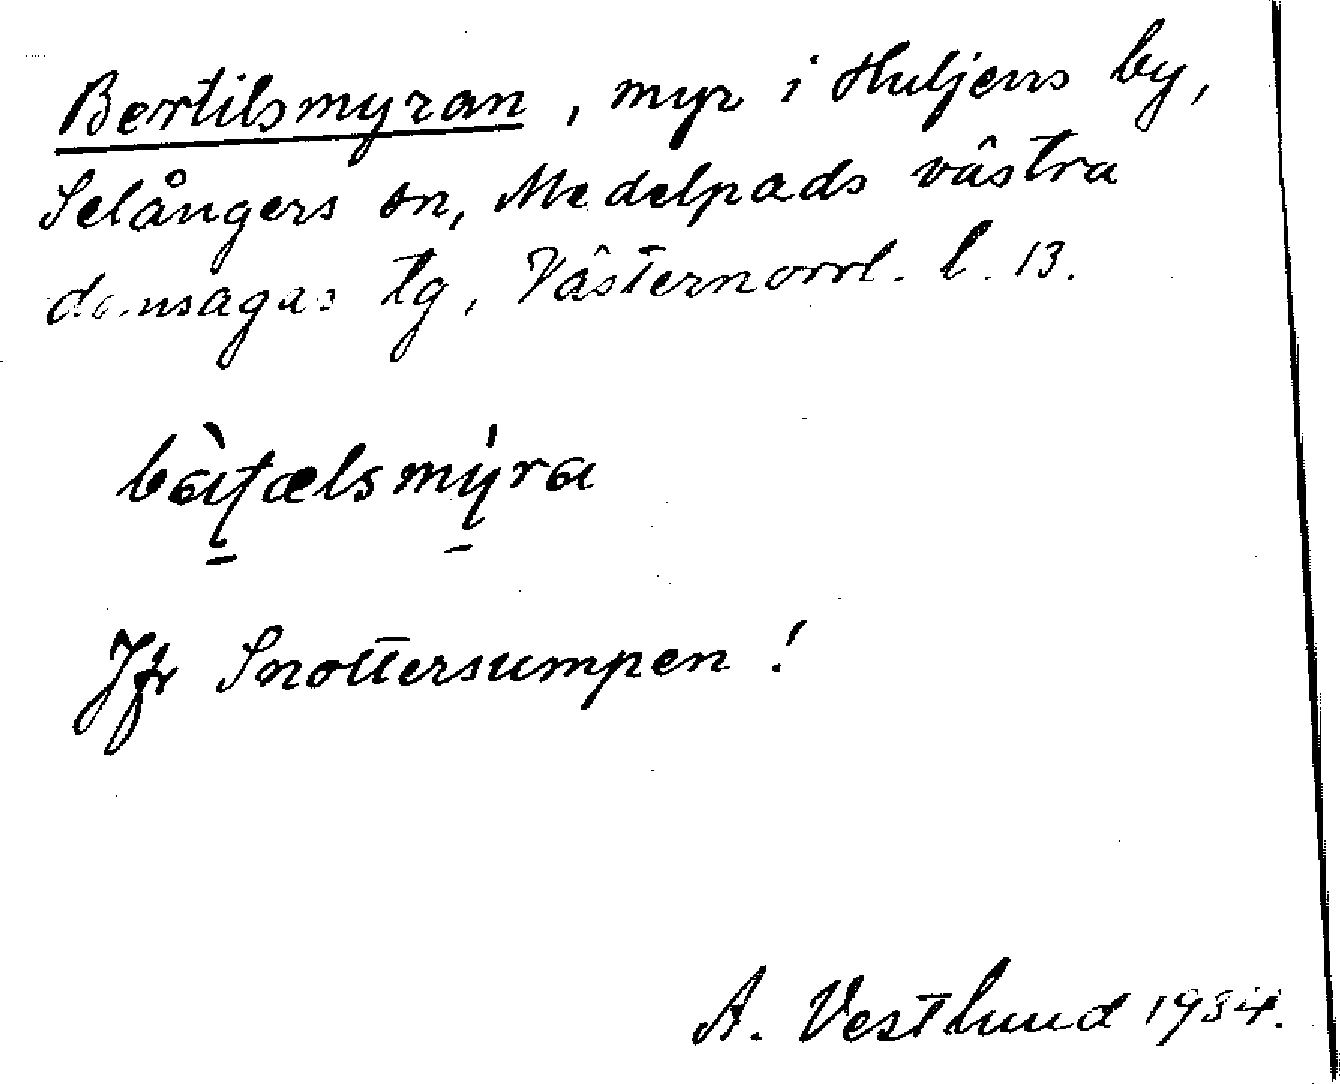 Bertilsmyran, myr i Huljens by,
Selångers sn, Medelpads västra
domsagas tg, Västernorrl. l. 13.
bàʈælsmýra
Jfr Snottersumpen!
A. Vestlund 1934.